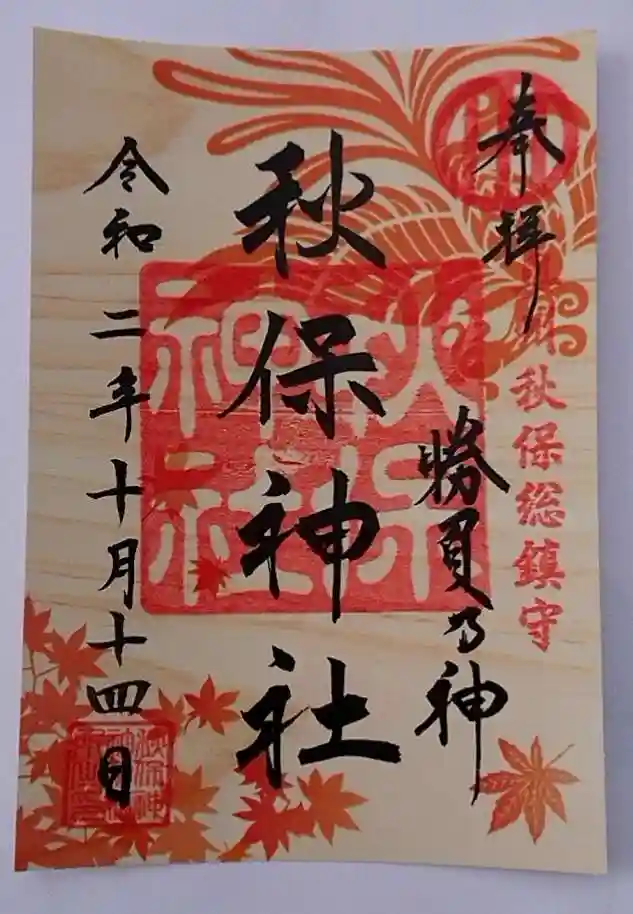 奉拝
州秋保総鎮守
勝負乃神
秋保神社
令和二年十月十四日
秋保神社